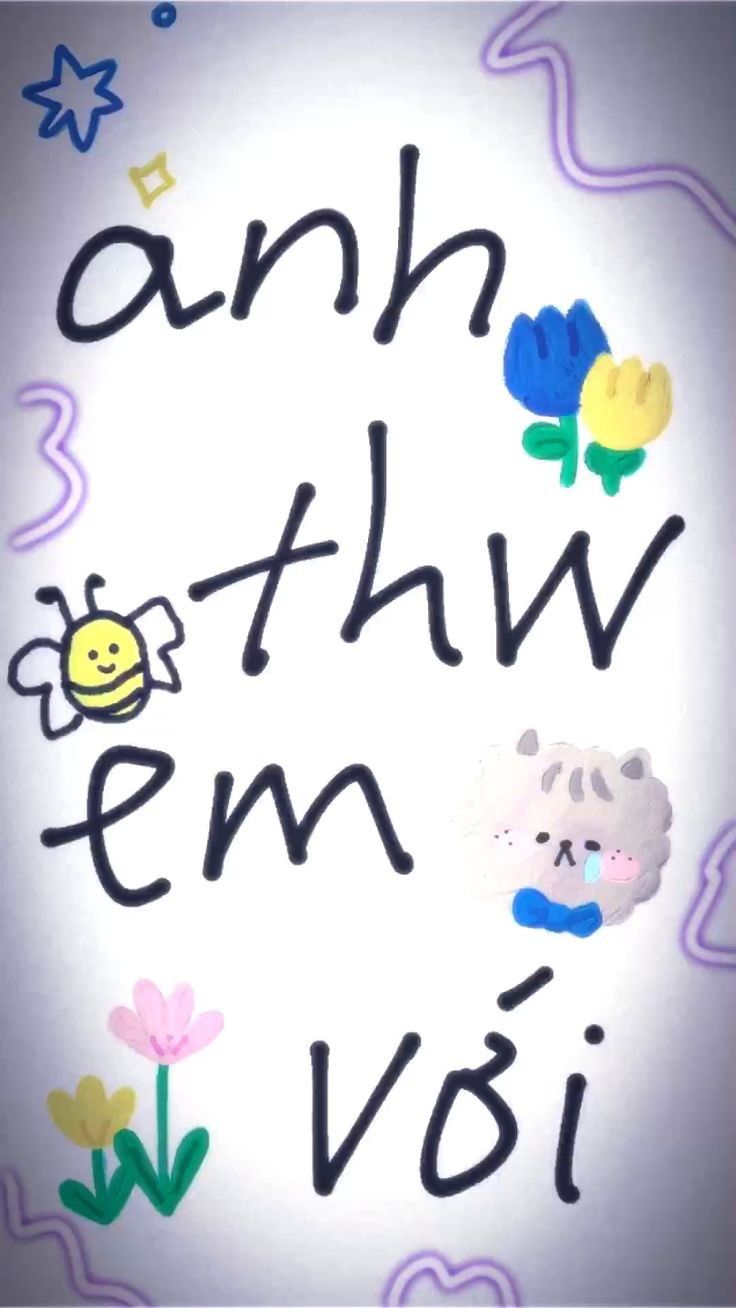 anh
thw
em
với